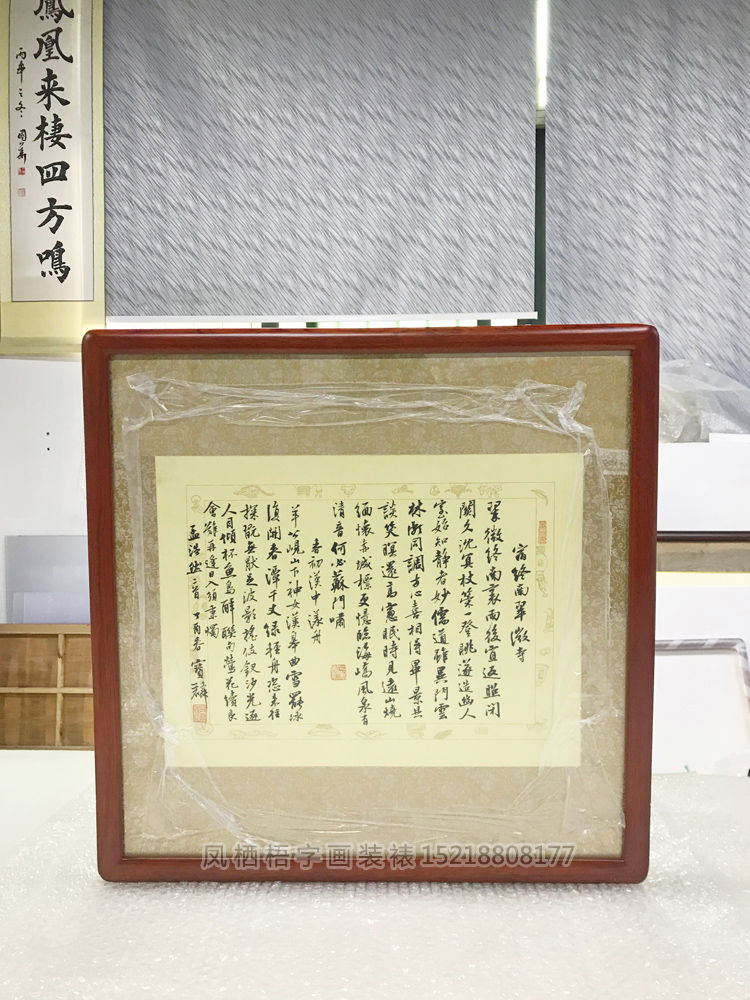 鳳凰来棲四方鳴
丙申之冬
宿終南翠微寺
翠微終南裏雨後宜返照閉
關久沈冥杖策一登眺遂造幽人
室始知静者妙儒道雖異門雲
林同調心喜相得畢景共
談笑暝還高窻眠時見遠山燒
緬懷赤城標更憶臨海嶠風泉有
清音何必蘇門嘯
春初漢中漾舟
羊公峴山下神女漢皋曲雪罷冰
復開春潭千丈绿輕舟恣来往
探翫無厭足波影摇妓釵沙光逐
人目傾杯魚鳥醉聯句鶯花續良
會難再逢日入須秉燭
孟浩然二首 丁酉春 寶麟
凤栖梧字画装裱15218808177